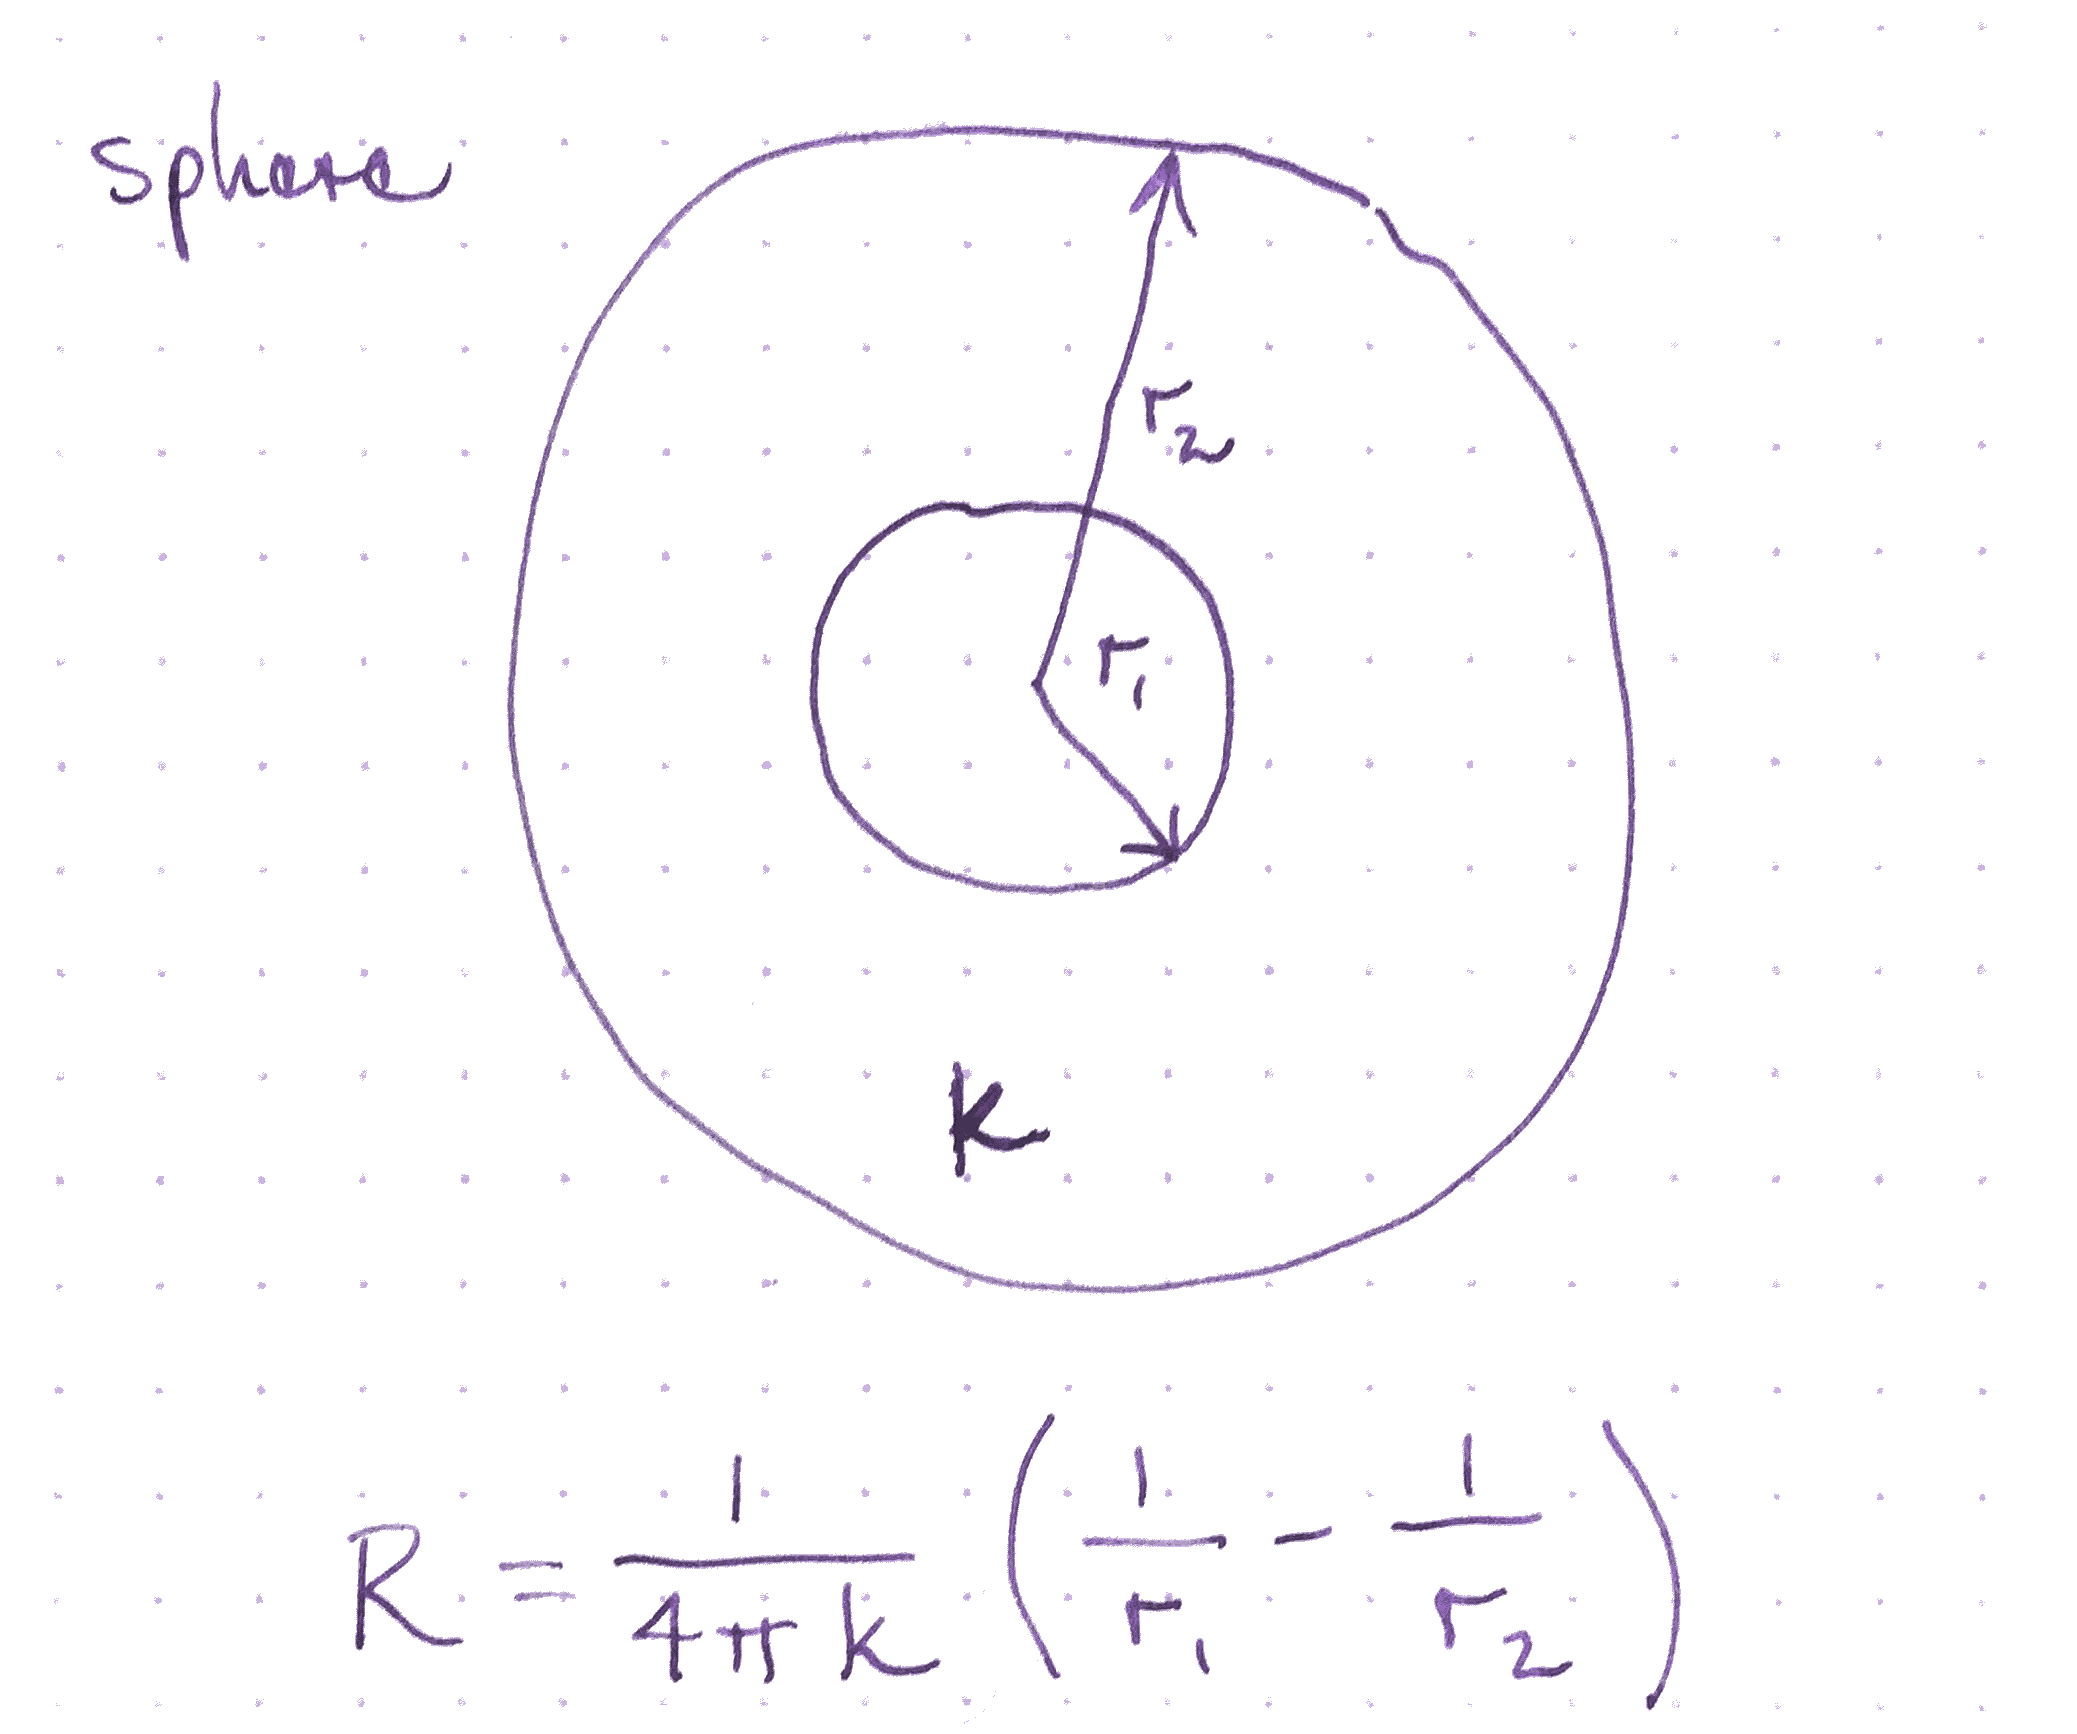 sphere
r₂
r₁
k
R = 1/(4πk) (1/r₁ - 1/r₂)